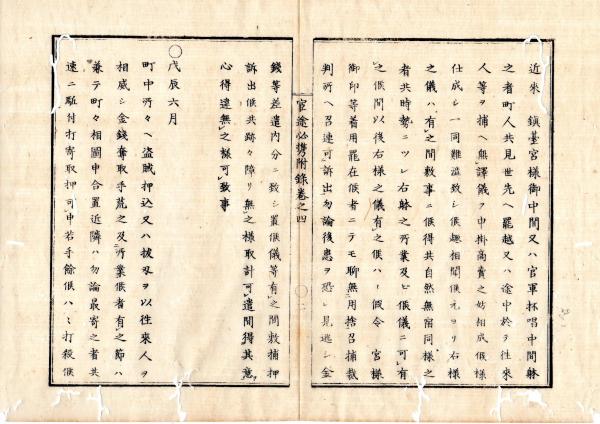 近来　鎮臺宮様御中間又ハ官軍杯唱中間躰
之者町人共見世先ヘ罷越又ハ途中於ヲ往来
人等ヲ捕ヘ無譯儀ヲ申掛高賣之妨相成候様
仕成シ一同難澁致シ候趣相聞候元ヨリ右様
之儀ハ有之間敷事ニ候得共自然無宿同様之
者共時勢ニツレ右躰之所業及ヒ候儀ニ可有
之候間以後右様之儀有之候ハヽ假令　宮様
御印等着用罷在候者ニテモ聊無用捨召捕裁
判所ヘ召連可訴出勿論後患ヲ恐レ見逃シ金
官途必携附録巻之四
錢等差遣内分ニ致シ置候儀等有之間敷捕押
訴出候共跡々障リ無之様取計可遣間得其意
心得違無之様可致事
○戊辰六月
町中所々ヘ盗賊押込又ハ拔刄ヲ以往來人ヲ
相威シ金錢奪取手荒之及所業候者有之節ハ
兼テ町々相圖申合置近隣ハ勿論最寄之者共
速ニ駈付打寄取押可申若手餘候ハヽ打殺候